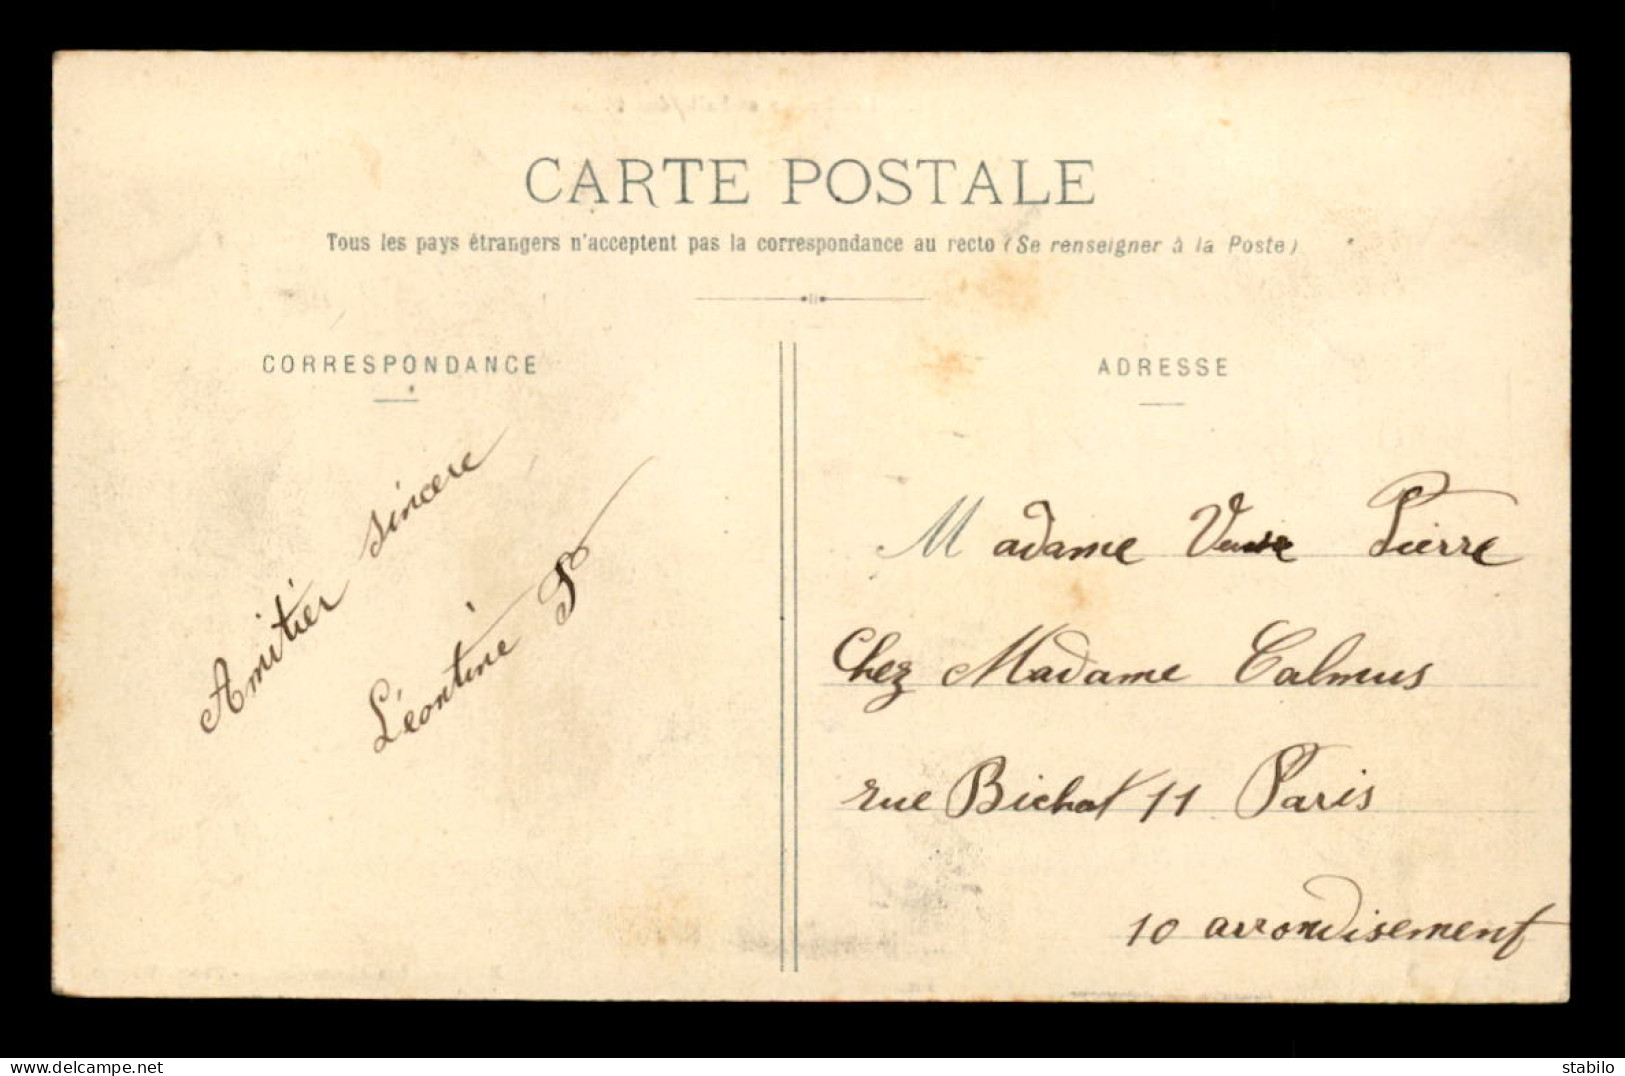 CARTE POSTALE
Tous les pays étrangers n'acceptent pas la correspondance au recto (Se renseigner à la Poste)
CORRESPONDANCE
ADRESSE
Amitier sincere
Léontine P
Madame Veuve Pierre
Chez Madame Calmus
rue Bichat 11 Paris
10 arrondisement
delcampe.net
stabilo